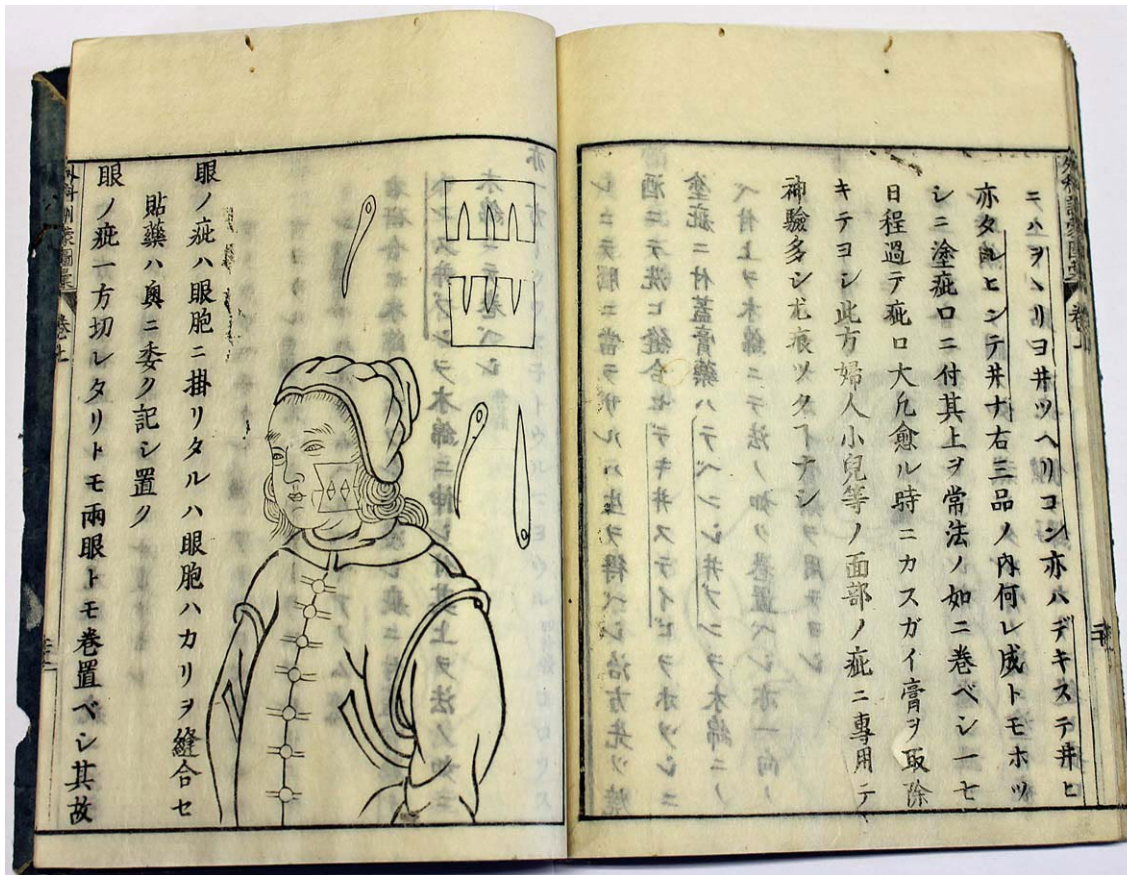 外科訓蒙圖彙 巻上
ニハヲヽリヨ井ツヘリコン亦ハデキステ井ヒ
亦タルヒンテ井ナ右三品ノ内何レ成トモホツ
シニ塗疵口ニ付其上ヲ常法ノ如ニ巻ベシ一七
日程過テ疵口大凡愈ル時ニカスガイ膏ヲ取除
キテヨシ此方婦人小兒等ノ面部ノ疵ニ専用テ
神驗多シ尤痕ツタヿナシ
眼ノ疵ハ眼胞ニ掛リタルハ眼胞ハカリヲ縫合セ
貼藥ハ奥ニ委ク記シ置ク
眼ノ疵一方切レタリトモ兩眼トモ巻置ベシ其故
外科訓蒙圖彙 巻上